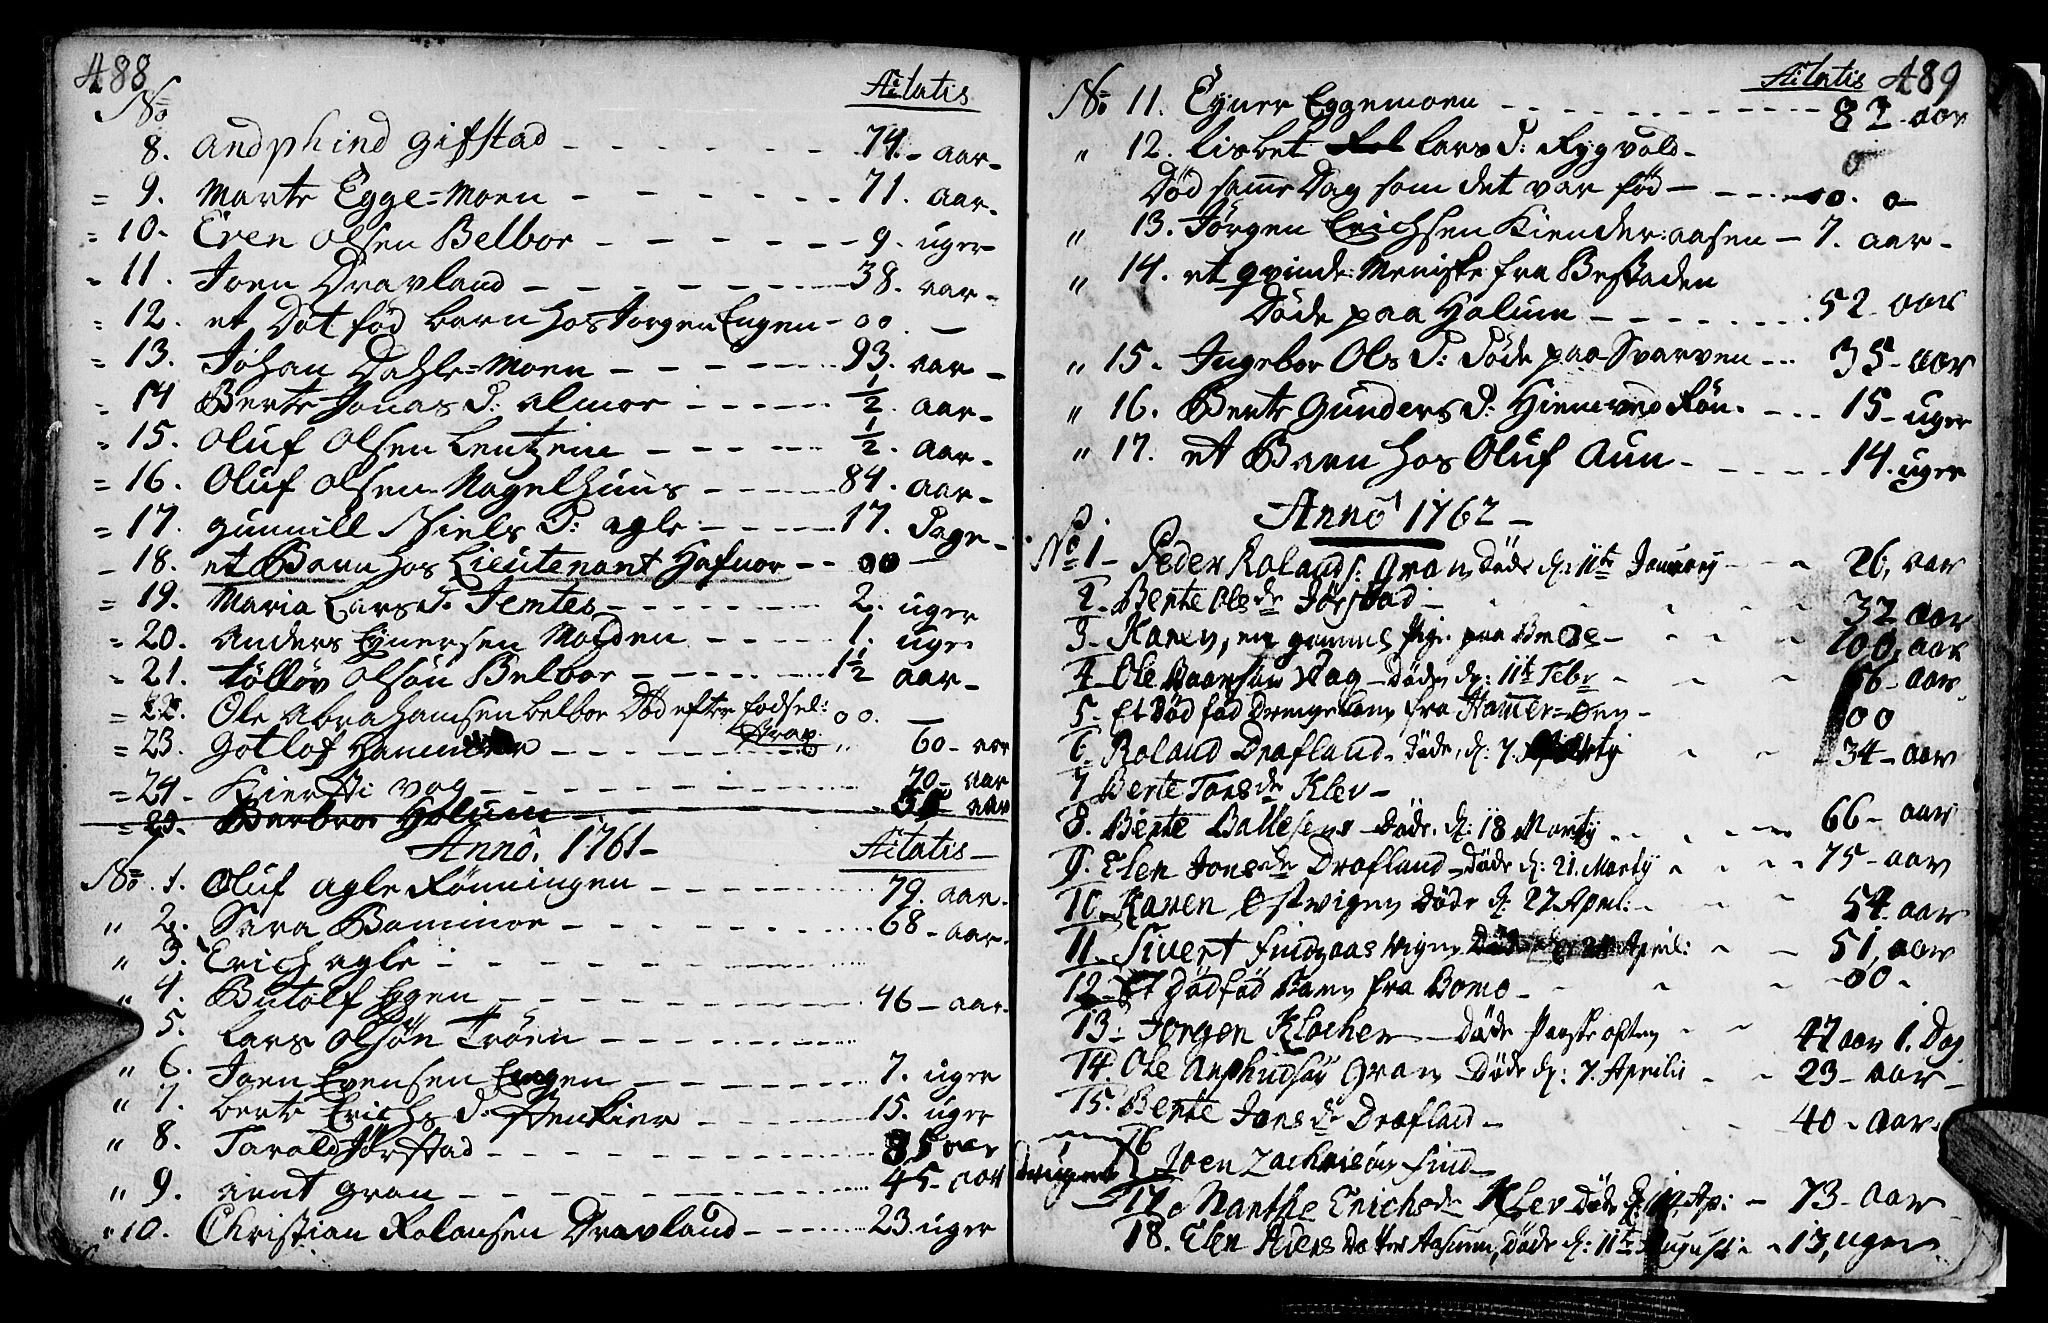 488
No Ætatis
8. Andphind Gifstad - - - 74. - aar -
= 9. Marte Egge=Moen - - - 71. aar -
= 10. Even Olsen Belbor - - - 9. uger
= 11. Joen Dravland - - - 38. aar -
= 12. et Døt fød barn hos Jorgen Engen - 00. -
= 13. Johan Dahle=Moen - - - 93. aar -
= 14 Berte Jonas D: Almor - - - 1/2. aar -
= 15. Oluf Olsen Lentzein - - - 1/2. aar -
= 16. Oluf Olsen Nagelhuus - - - 84. aar -
= 17. Gunnill Niels D: Agle - - - 17. Dage -
- 18. et Barn hos Lieutenant Hafnor - - 00 -
= 19. Maria Lars D. Temtes - - - 2. uger
= 20. Anders Eynersen Moeden - - - 1. uge
= 21. Tølløv Olsøn Belbor - - - 1 1/2 aar -
= 22. Ole Abrahamsen belbor Død efter fødsel: 00. -
= 23. Gotlof Hammeren - - - 60 - aar
= 24. Kiersti Vog - - - 70 - aar
= 25. Barbroe Holum - - - aar
Anno. 1761 - Ætatis -
No. 1. Oluf Agle Rønningen - - - 79. aar -
" 2. Sara Bominoe - - - 68 - aar -
" 3. Erich Agle - - -
" 4. Butolf Eggen - - - 46 - aar -
5. Lars Olsøn Trøen - - -
" 6. Joen Evensen Engen - - - 7. uger
" 7. berte Erichs d. Stenkier - - - 15. uger
" 8. Tarald Jørstad - - - 85 aar
" 9. Arent Gran - - - 45 - aar
" 10. Christian Rolansen Dravland - - - 23. uger
Ætatis 489
No 11. Eyner Eggemoen - - - 83 - aar
" 12. Lisbet Lars D: Rygvold -
Død samme Dag som det var fød - - - 0. 0 -
" 13. Jørgen Erichsen Kiender:aasen - 7. aar -
" 14. et qvinde: Meniske fra Bestaden
Døde paa Holum - - - 52 - aar
" 15. Ingebor Ols D: Døde paa Svarven - - - 35 - aar
" 16. Berte Gunders D: Hiemved Røn. - - - 15 - uger
" 17. et Barn hos Oluf Aun - - - 14. uger
Anno 1762 -
No 1 - Peder Rolands: Gran, Døde d: 11te January - - 26, aar
2 - Berte Ols dr Jørstad - 32 aar
3 - Karen, en gammel Pige paa - 100, aar
4 - Ole Vag - Døde d: 11te Febr - aar -
5 - Et Død fød Drengebarn fra Hamer=Øen - 00
6 - Roland Drafland - Døde, d: 7. Marty 34 - aar
7 Berte Tons dr Klev -
8. Berte Døde. d: 18 Marty 66 - aar
9. Elen Jons dr Drafland - Døde d: 21. Marty 75 - aar
10. Karen Østvigen Døde d: 27 April: - 54 - aar
11. Sivert Døde April: 51, aar
12 - Et Dødfød Barn fra Bomo - 00 -
13 - Jørgen Klocher - Døde Paaske aften 47 aar 1. Dag
14. Ole Anphindsøn Gran - Døde d: 7. Aprilis 23 - aar -
15. Berte Jons dr Drafland - 40 - aar.
16 Joen Zachrisøn Find -
17. Marthe Erichs dr Klev Døde Ap: - 73 - aar -
18. Elen Peders Datter Døde d: 11te August: - 13, uger